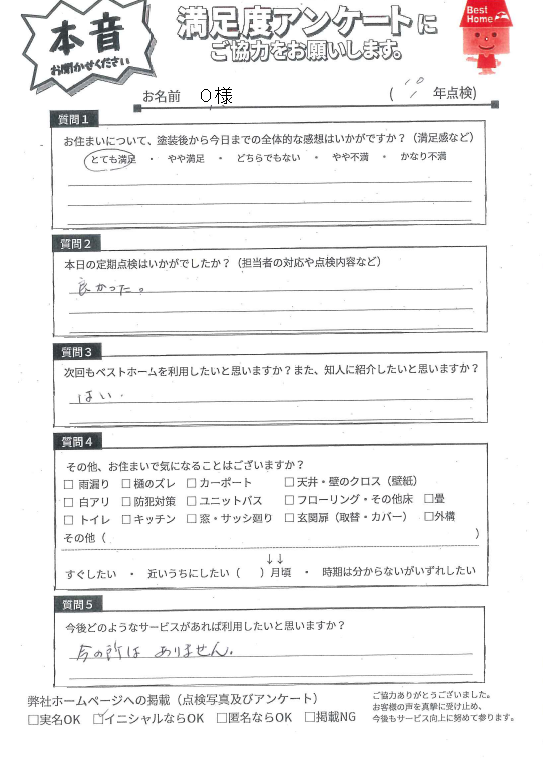 本音
お聞かせください
満足度アンケートに
ご協力をお願いします。
Best
Home
お名前 O様 ( 年点検)
質問1
お住まいについて、塗装後から今日までの全体的な感想はいかがですか？（満足感など）
とても満足 ・ やや満足 ・ どちらでもない ・ やや不満 ・ かなり不満
質問2
本日の定期点検はいかがでしたか？（担当者の対応や点検内容など）
良かった。
質問3
次回もベストホームを利用したいと思いますか？また、知人に紹介したいと思いますか？
はい.
質問4
その他、お住まいで気になることはございますか？
□ 雨漏り □ 樋のズレ □ カーポート □ 天井・壁のクロス（壁紙）
□ 白アリ □ 防犯対策 □ ユニットバス □ フローリング・その他床 □畳
□ トイレ □ キッチン □ 窓・サッシ廻り □ 玄関扉（取替・カバー） □外構
その他（ ）
↓↓
すぐしたい ・ 近いうちにしたい（ ）月頃 ・ 時期は分からないがいずれしたい
質問5
今後どのようなサービスがあれば利用したいと思いますか？
今の所は ありません。
弊社ホームページへの掲載（点検写真及びアンケート）
□実名OK ☑イニシャルならOK □匿名ならOK □掲載NG
ご協力ありがとうございました。
お客様の声を真摯に受け止め、
今後もサービス向上に努めて参ります。